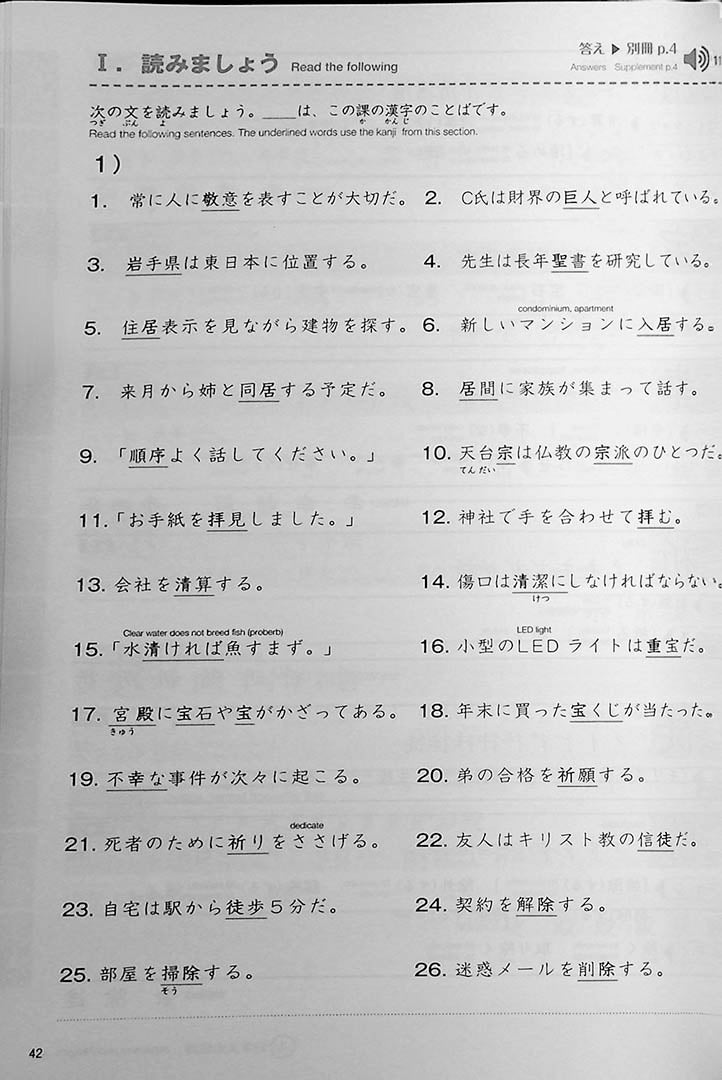 I. 読みましょう Read the following
答え ▶ 別冊 p.4
Answers Supplement p.4
11
次の文を読みましょう。____は、この課の漢字のことばです。
つぎ ぶん よ か かんじ
Read the following sentences. The underlined words use the kanji from this section.
1)
1. 常に人に敬意を表すことが大切だ。
2. C氏は財界の巨人と呼ばれている。
3. 岩手県は東日本に位置する。
4. 先生は長年聖書を研究している。
5. 住居表示を見ながら建物を探す。
condominium, apartment
6. 新しいマンションに入居する。
7. 来月から姉と同居する予定だ。
8. 居間に家族が集まって話す。
9. 「順序よく話してください。」
10. 天台宗は仏教の宗派のひとつだ。
てんだい
11. 「お手紙を拝見しました。」
12. 神社で手を合わせて拝む。
13. 会社を清算する。
14. 傷口は清潔にしなければならない。
けつ
Clear water does not breed fish (proberb)
15. 「水清ければ魚すまず。」
LED light
16. 小型のLEDライトは重宝だ。
17. 宮殿に宝石や宝がかざってある。
きゅう
18. 年末に買った宝くじが当たった。
19. 不幸な事件が次々に起こる。
20. 弟の合格を祈願する。
dedicate
21. 死者のために祈りをささげる。
22. 友人はキリスト教の信徒だ。
23. 自宅は駅から徒歩5分だ。
24. 契約を解除する。
25. 部屋を掃除する。
そう
26. 迷惑メールを削除する。
42